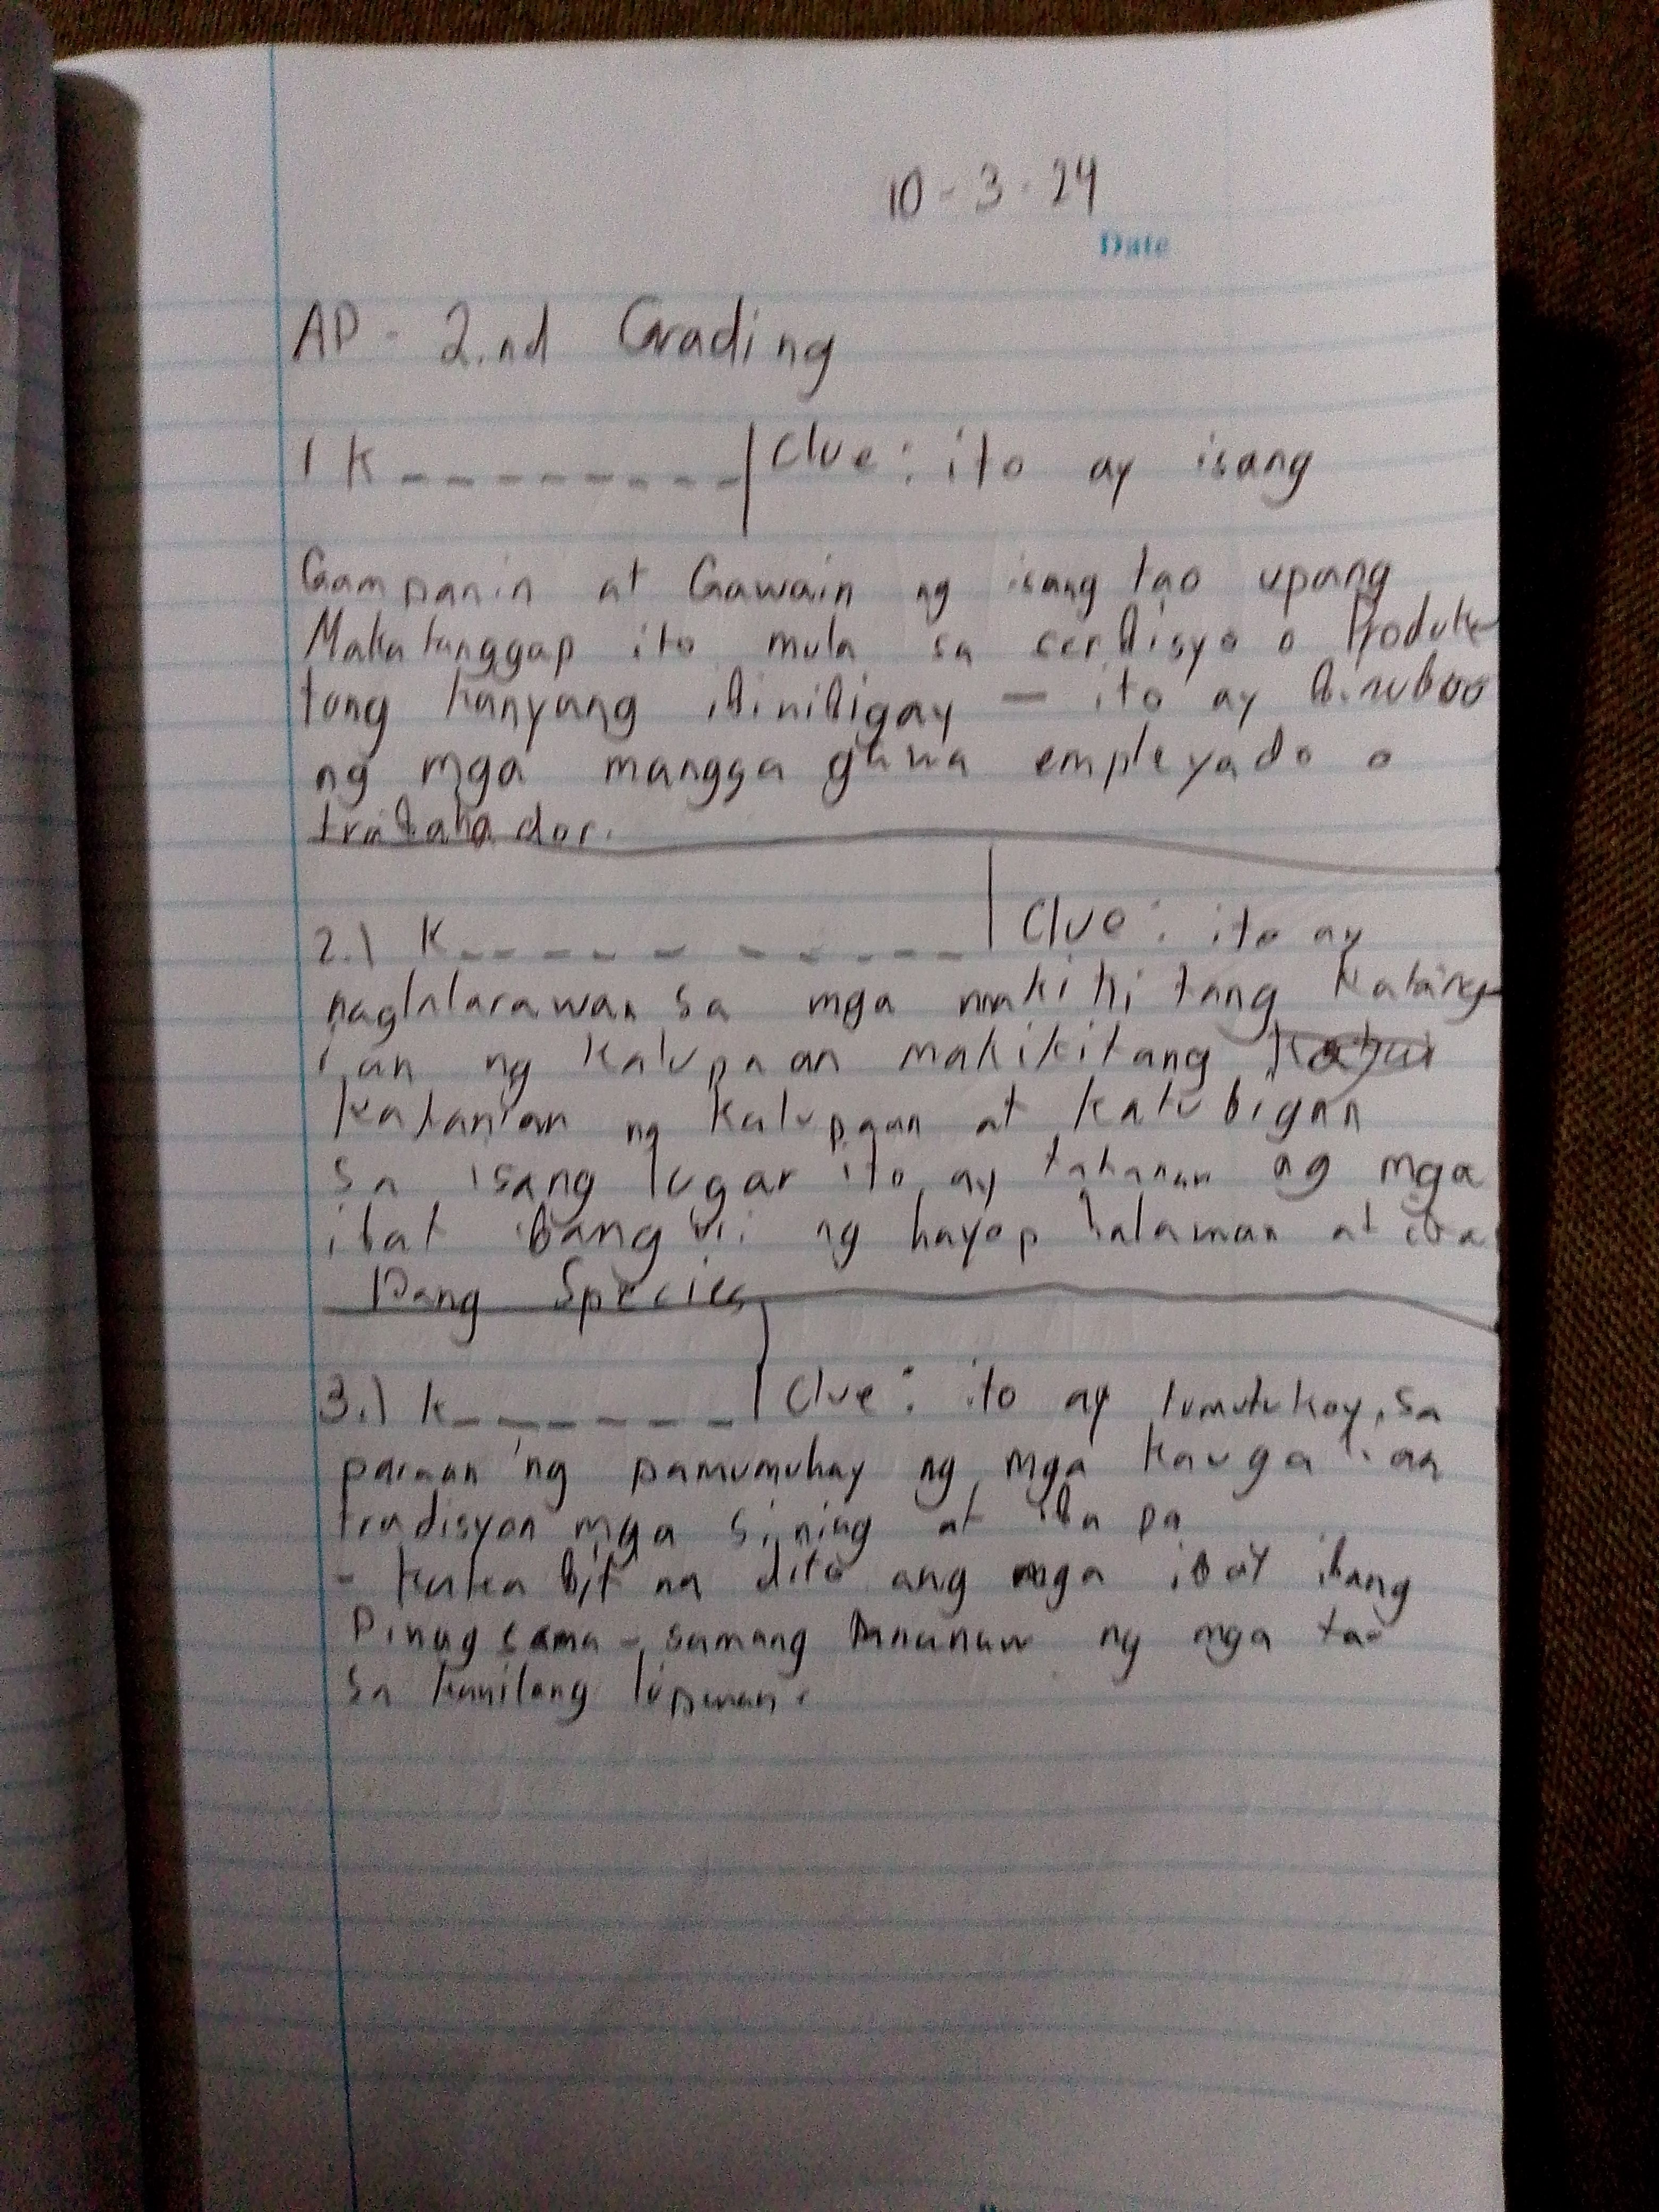 10-3-24
Date
AP - 2.nd Grading
1 K _ _ _ _ _ _ _ _ _ | Clue: ito ay isang
Gampanin at Gawain ng isang tao upang
Makatanggap ito mula sa serbisyo o Produkt
tong kanyang ibinibigay — ito ay binuboo
ng mga mangga gawa empleyado o
trabahador.
2.) K _ _ _ _ _ _ _ _ _ _ | Clue: ito ay
naglalarawan sa mga makiki tang Katang
ian ng Kalupaan makikitang
Katanian ng Kalupaan at Katubigan
sa isang lugar ito ay tahanan ng mga
ibat ibang uri ng hayop halaman at iba
Pang Species
3.) K _ _ _ _ _ _ _ | Clue: ito ay tumutukoy sa
paraan ng pamumuhay ng mga kauga lian
tradisyon mga sining at iba pa
- kaka bit na dito ang mga ibat ibang
Pinag sama - samang Pananaw ng mga tao
sa kanilang lipunan.